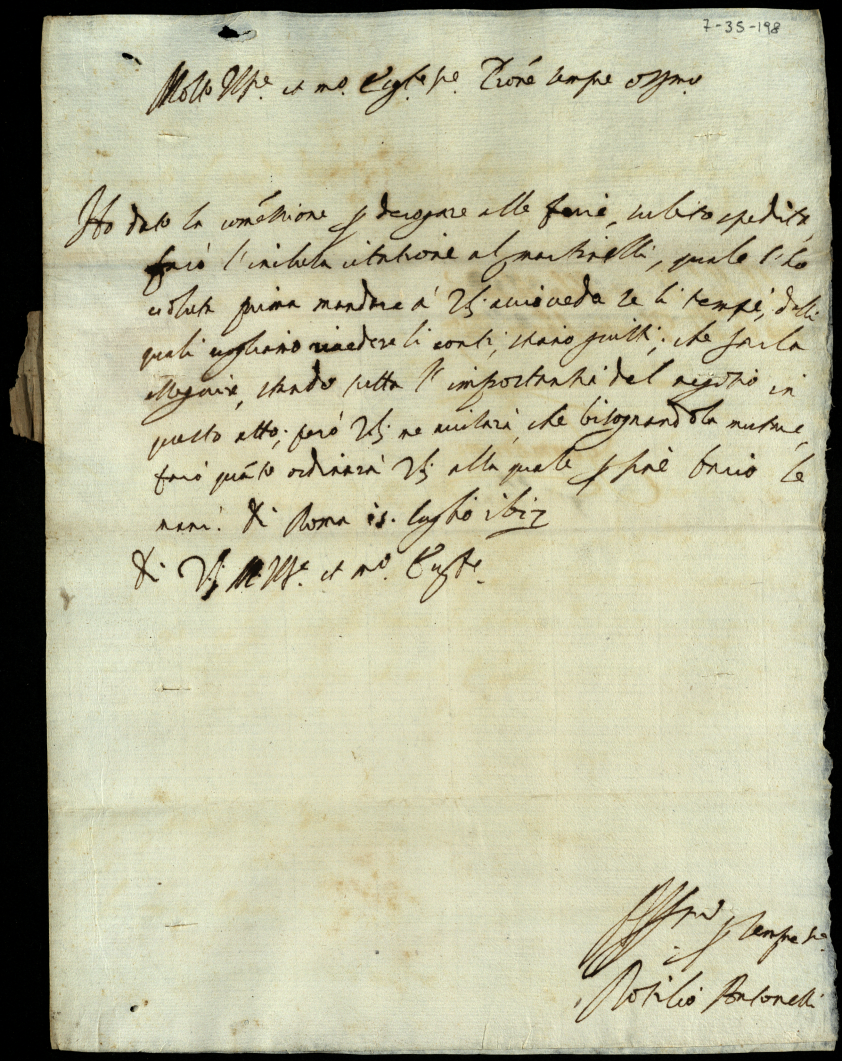 7-35-198
Molto Ill.re et m.o Ecc.te s.re Pròne sempre oss.mo
Ho dato la coméssione p derogare alle ferie, subito spedita,
farò l'inclusa citatione al martinelli, quale l'ho
voluta prima mandare a' VS. acciò veda se li tempi, dalli
quali vogliano rivedere li conti, stano giusti; che sarla
esseguire, stando tutta l'importanza del negotio in
questo atto; però VS. ne avisarà, che bisognandola mutare,
farò quāto ordinarà VS. alla quale p fine bacio le
mani. Di Roma luglio
Di VS. M. Ill.re et m.o Ecc.te
p sempre
Antonelli